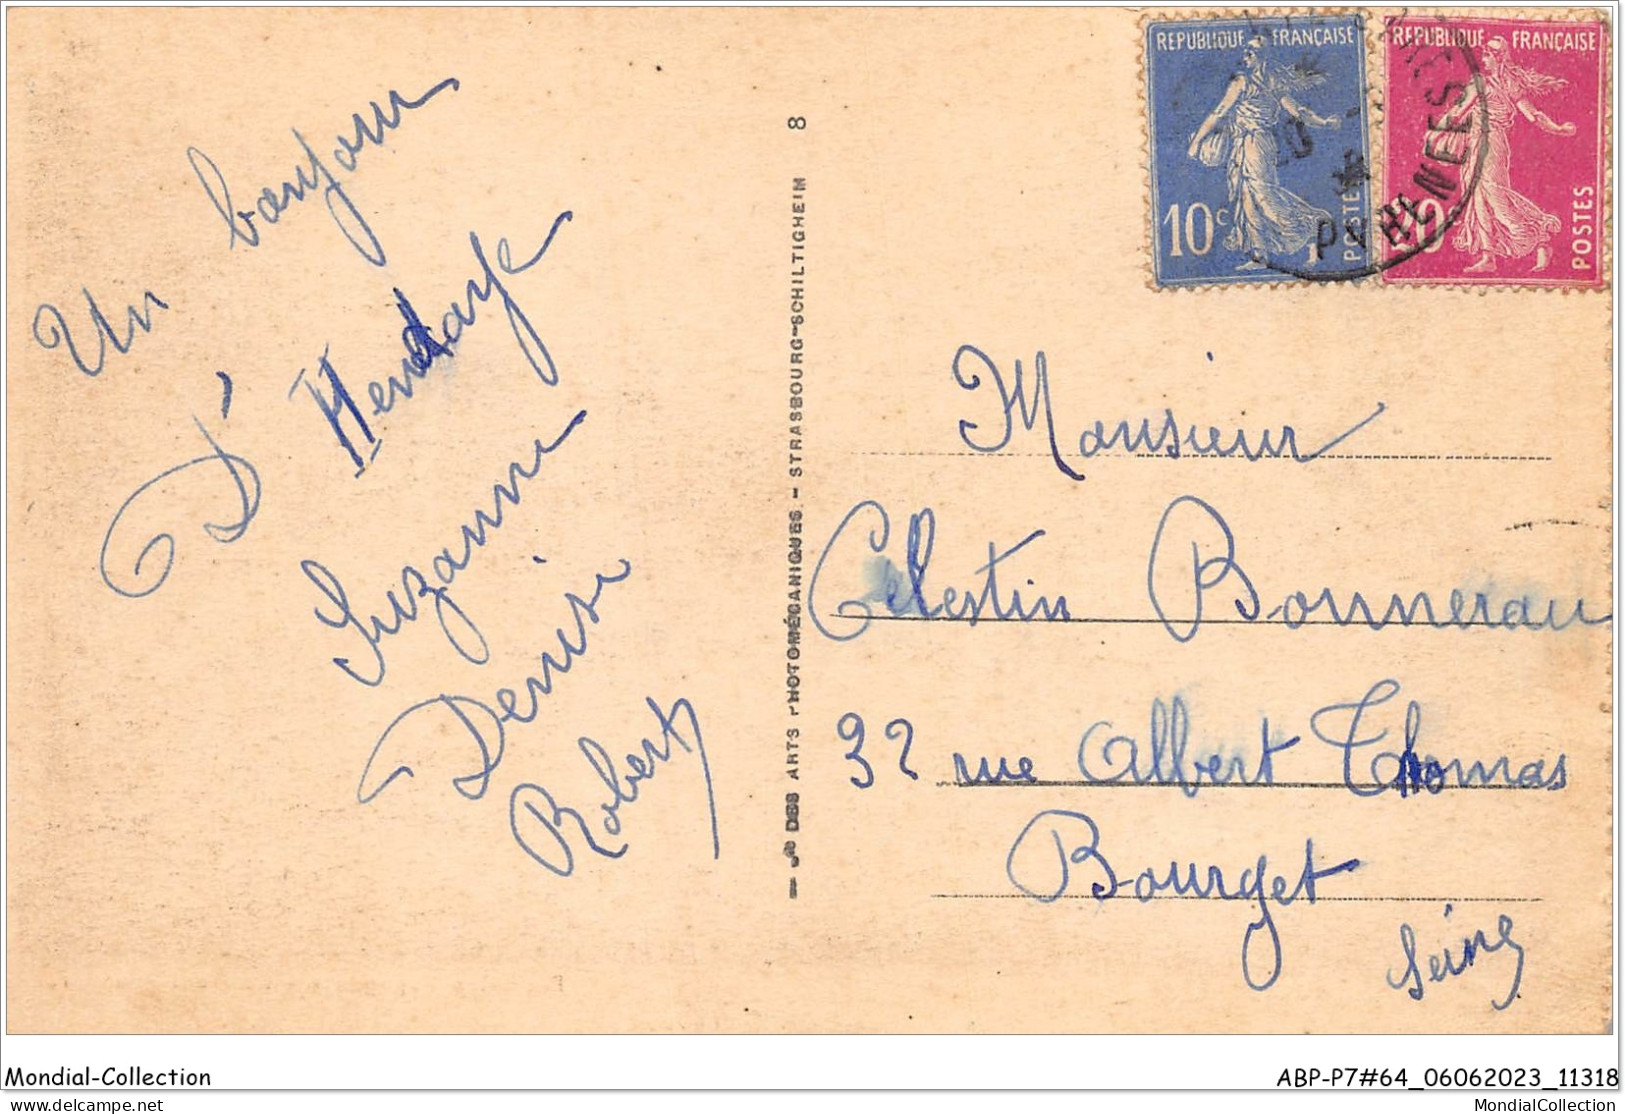 Un bonjour
D'Hendaye
Suzanne
Denise
Robert
DES ARTS PHOTOMÉCANIQUES. - STRASBOURG-SCHILTIGHEIM 8
REPUBLIQUE FRANÇAISE
10c POSTES
REPUBLIQUE FRANÇAISE
20c POSTES
PYRENEES
Monsieur
Celestin Bonnerau
32 rue Albert Thomas
Bourget
Seine
Mondial-Collection
ABP-P7#64_06062023_11318
delcampe.net
MondialCollection